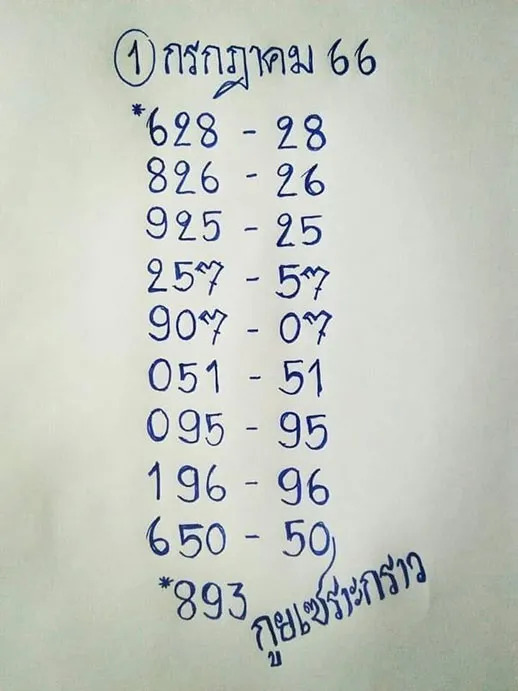 1 กรกฎาคม 66
*628 - 28
826 - 26
925 - 25
257 - 57
907 - 07
051 - 51
095 - 95
196 - 96
650 - 50
*893
กูยเซราะกราว